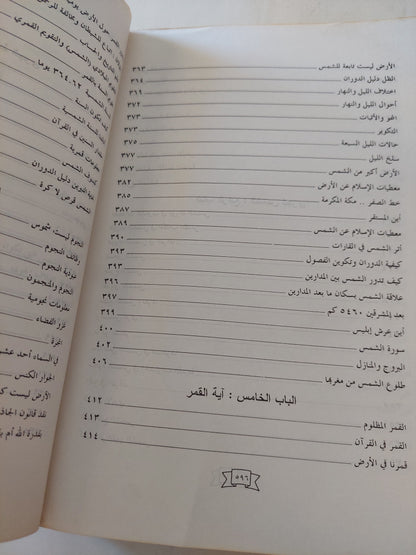 الأرض ليست تابعة للشمس ٣٦٣
الظل دليل الدوران ٣٦٤
اختلاف الليل والنهار ٣٦٩
أحوال الليل والنهار ٣٧٢
المحو والآفات ٣٧٣
التكوير ٣٧٣
حالات الليل السبعة ٣٧٥
سلخ الليل ٣٧٧
الأرض أكبر من الشمس ٣٧٧
معطيات الإسلام عن الأرض ٣٨٢
خط الصفر .. مكة المكرمة ٣٨٥
أين المستقر ٣٨٧
معطيات الإسلام عن الشمس ٣٨٩
أثر الشمس في القارات ٣٩٠
كيفية الدوران وتكوين الفصول ٣٩٣
كيف تدور الشمس بين المدارين ٣٩٣
علاقة الشمس بسكان ما بعد المدارين ٣٩٦
بعد المشرقين ٥٤٦٠ كم ٣٩٧
أين عرش إبليس ٣٩٩
سورة الشمس ٤٠٠
البروج والمنازل ٤٠٢
طلوع الشمس من مغربها ٤٠٦
الباب الخامس : آية القمر
القمر المظلوم ٤١٢
القمر في القرآن ٤١٣
قمرنا في الأرض ٤١٤
٥٩٦
حول الأرض
والتقويم القمري
السنة بالقمر
٣٦٤.٦٢ يوما
تكون السنة
السنين في القرآن
معلومات قمرية
كسوف الشمس
دليل الدوران
الشمس قرص لا كرة
النجوم ليست شموس
وظائف النجوم
النجوم والمنجمون
معلومات نجومية
غزو الفضاء
المجرة
في السماء أحد عشر
الجوار الكنس
الأرض ليست
نقد قانون